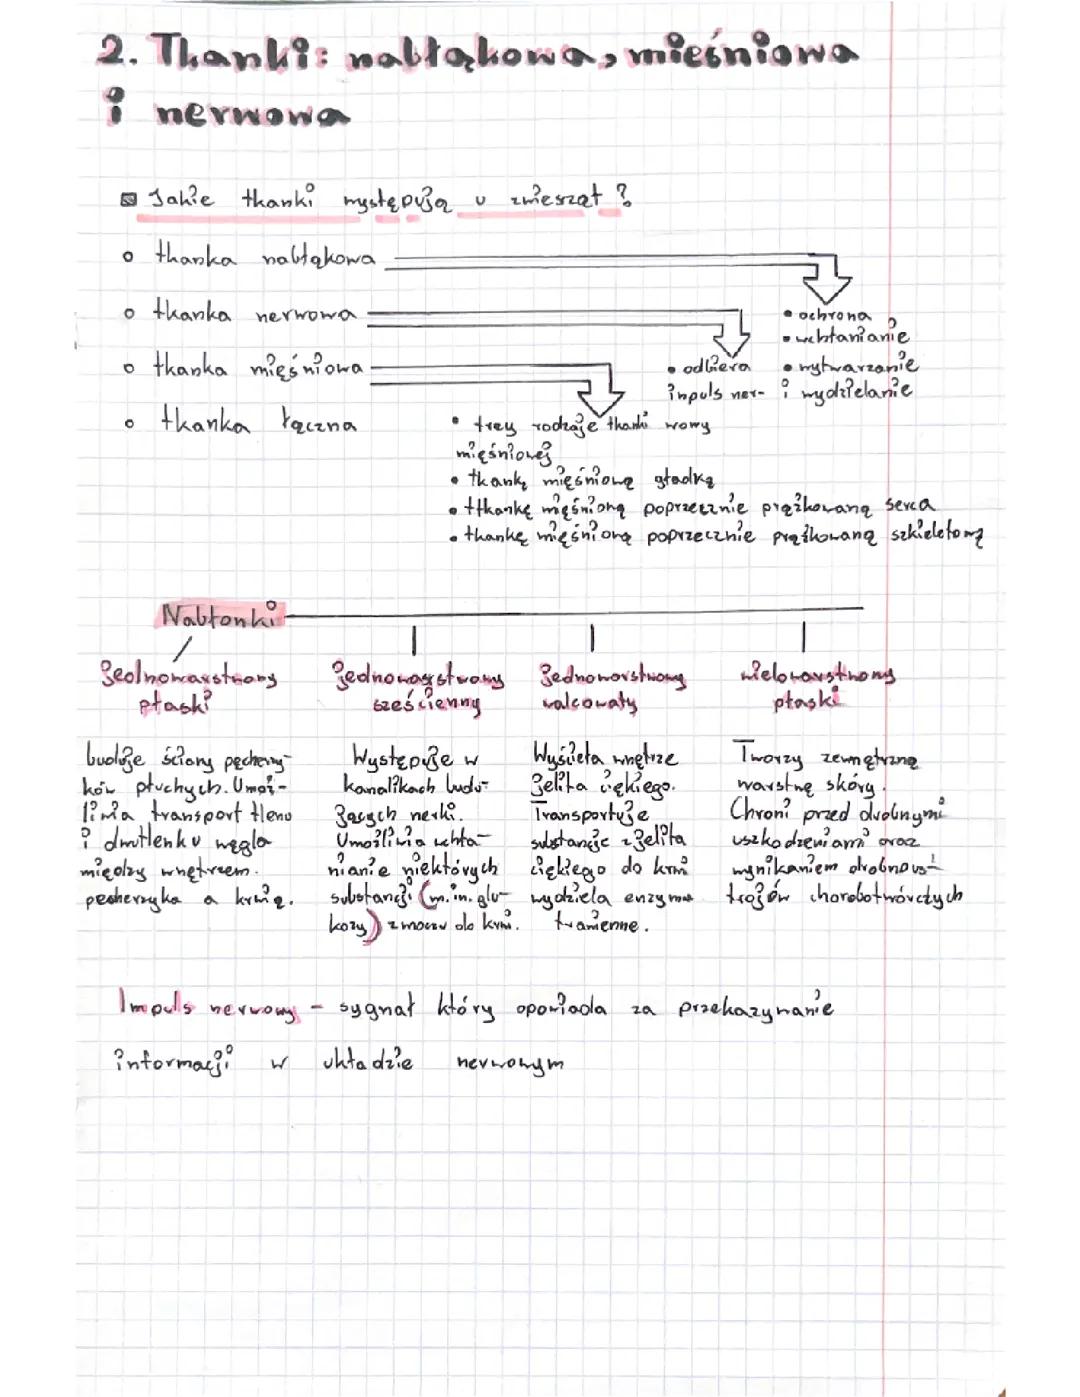 2. Tkanki: nabłąkowa, mięśniowa
i nerwowa
Jakie tkanki występują u zwierząt?
tkanka nabłąkowa
tkanka nerwowa
tkanka mięśniowa
tkanka łączna
• ochrona
• wchłanianie
• wytwarzanie
i wydzielanie
• odbiera
inpuls ner-
wowy
• trzy rodzaje tkanki
mięśniowej
• tkankę mięśniową gładką
• tkankę mięśnioną poprzecznie prążkowaną serca
• tkankę mięśnioną poprzecznie prążkowaną szkieletową
Nabłonki
jednowarstwowy
płaski
jednowarstwowy
sześcienny
jednowarstwowy
walcowaty
wielowarstwowy
płaski
buduje ściany pęcherzy-
ków płucnych. Umoż-
liwia transport tlenu
i dwutlenku węgla
między wnętrzem
pęcherzyka a krwią.
Występuje w
kanalikach budu-
jących nerki.
Umożliwia wchła-
nianie niektórych
substancji (m.in. glu-
kozy) z moczu do krwi.
Wyściela wnętrze
jelita cieńkiego.
Transportuje
substancje z jelita
cieńkiego do krwi
wydziela enzymy
trawienne.
Tworzy zewnętrzną
warstwę skóry.
Chroni przed drobnymi
uszkodzeniami oraz
wynikaniem drobnous-
trojów chorobotwórczych
Impuls nerwowy - sygnał który opowiada za przekazywanie
informacji w układzie nerwowym